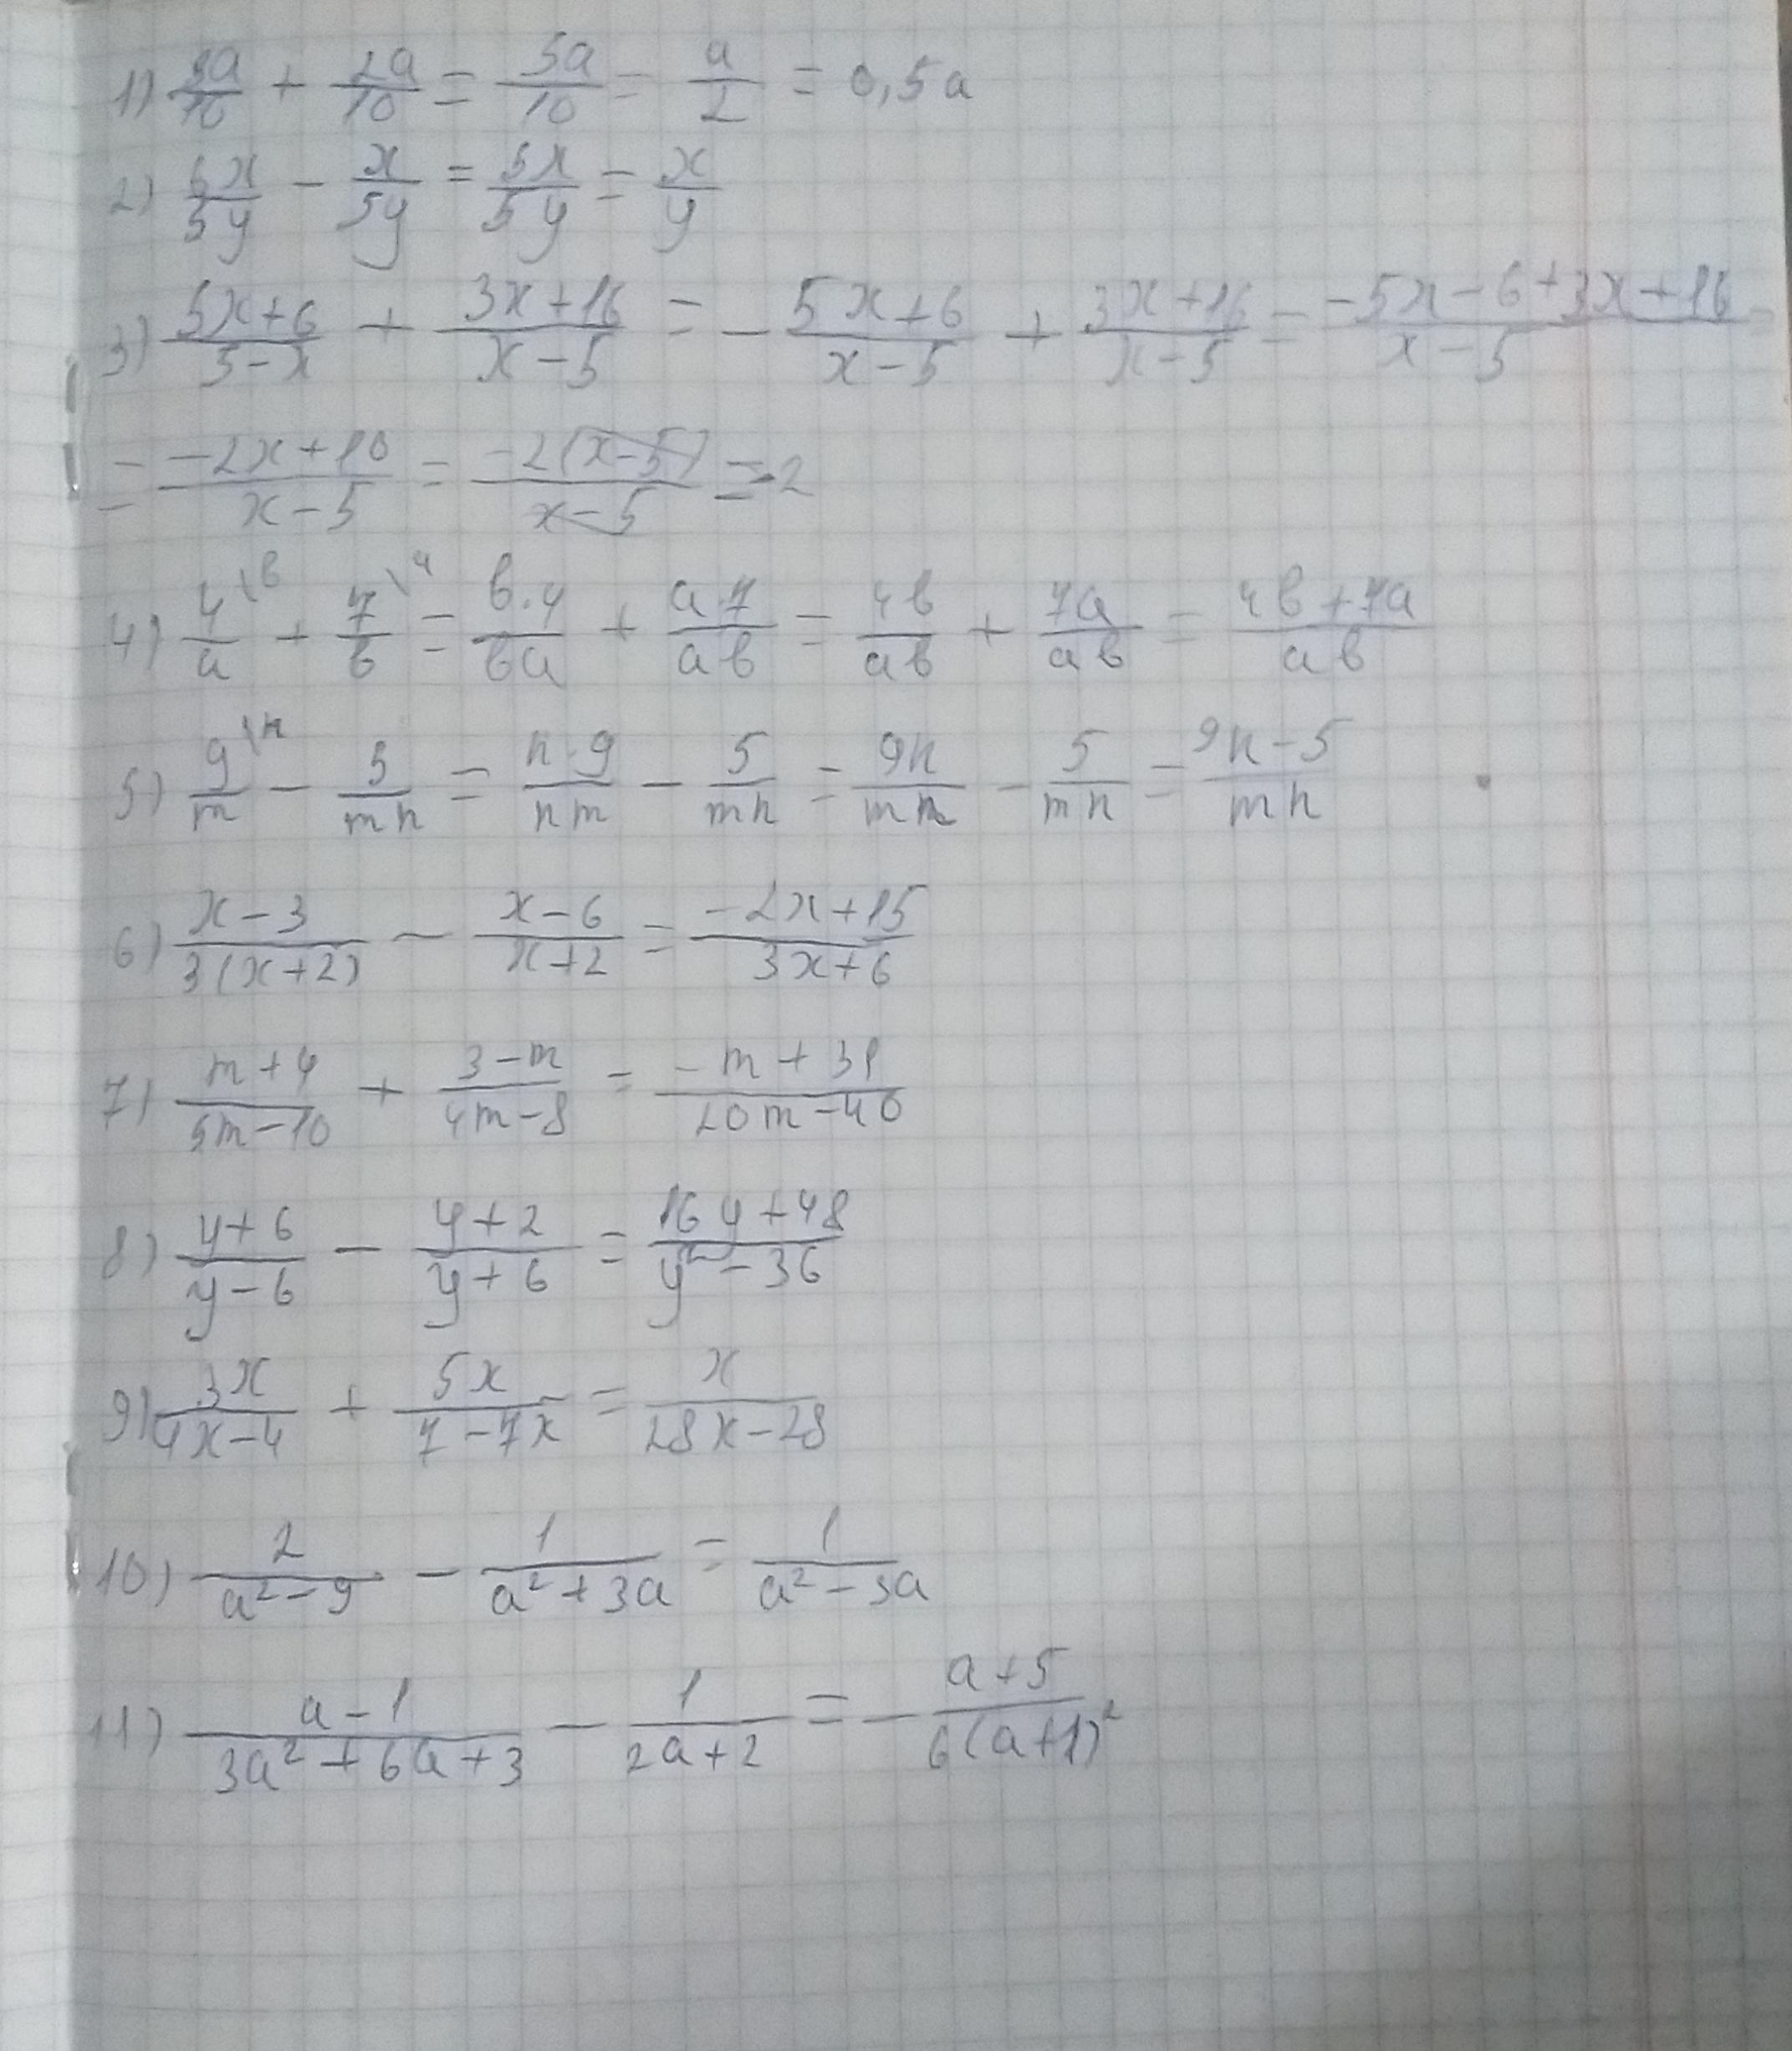 1) 3a/10 + 2a/10 = 5a/10 = a/2 = 0,5a
2) 6x/5y - x/5y = 5x/5y = x/y
3) 5x+6/5-x + 3x+16/x-5 = - 5x+6/x-5 + 3x+16/x-5 = -5x-6+3x+16/x-5 =
= -2x+10/x-5 = -2(x-5)/x-5 = -2
4) 4/a \в + 7/в \a = в·4/вa + a·7/aв = 4в/aв + 7a/aв = 4в+7a/aв
5) 9/m \n - 5/mn = n·9/nm - 5/mn = 9n/mn - 5/mn = 9n-5/mn
6) x-3/3(x+2) - x-6/x+2 = -2x+15/3x+6
7) m+4/5m-10 + 3-m/4m-8 = -m+31/20m-40
8) y+6/y-6 - y+2/y+6 = 16y+48/y²-36
9) 3x/4x-4 + 5x/7-7x = x/28x-28
10) 2/a²-9 - 1/a²+3a = 1/a²-3a
11) a-1/3a²+6a+3 - 1/2a+2 = - a+5/6(a+1)²